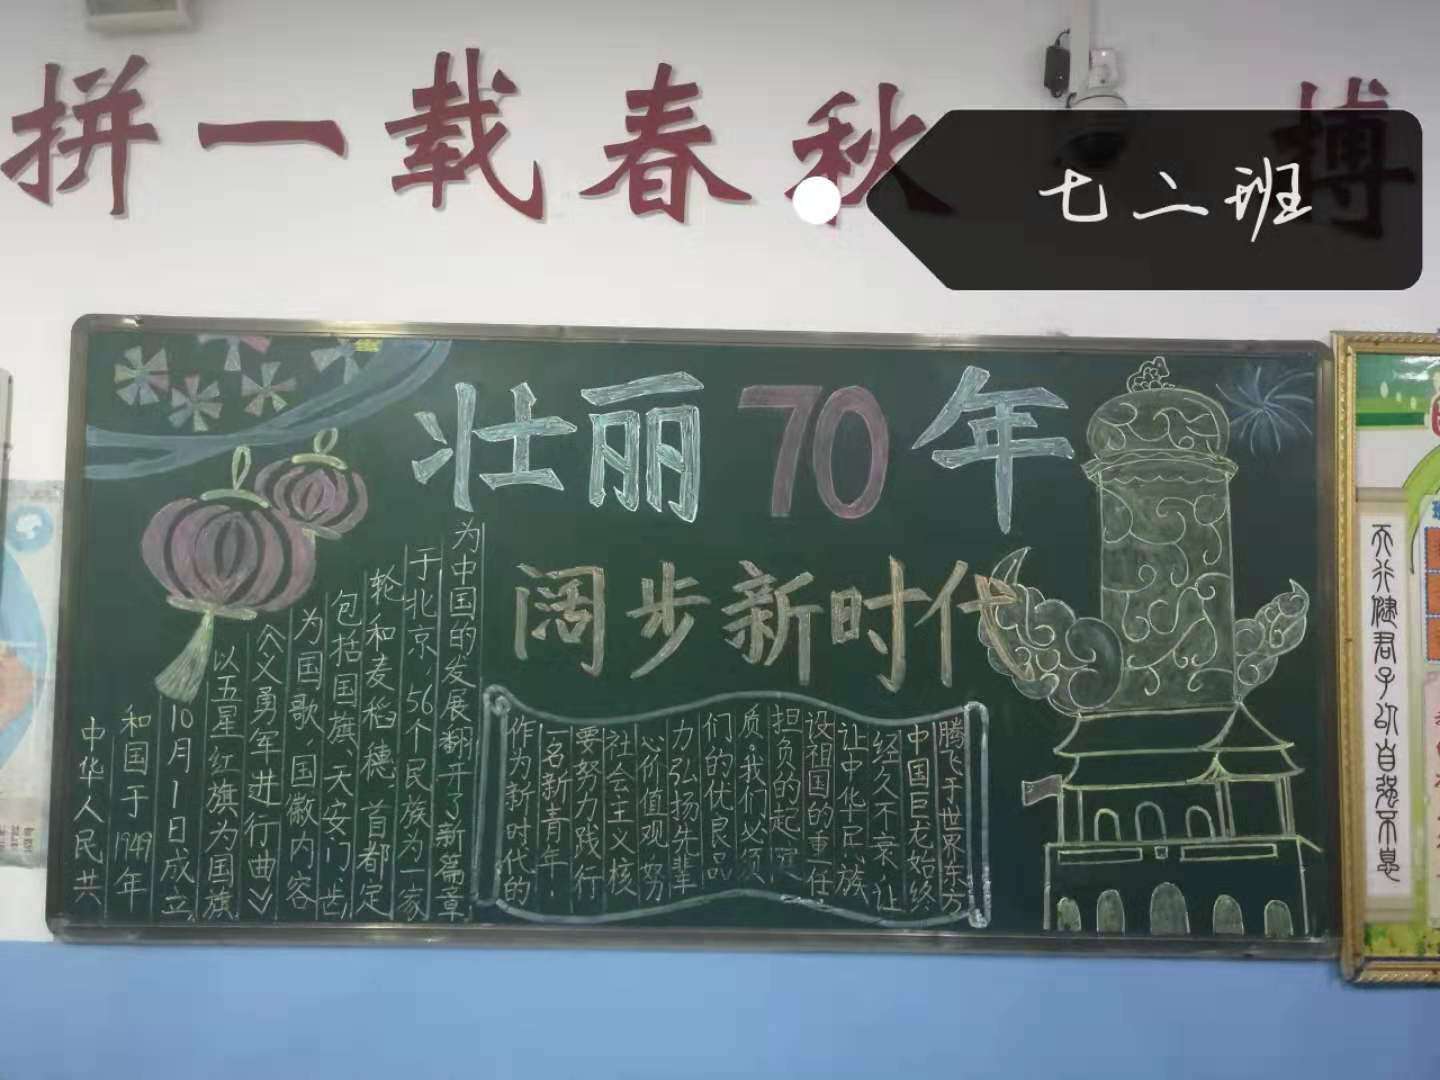 拼一载春秋 搏
七二班
壮丽70年
阔步新时代
中华人民共
和国于1949年
10月1日成立
以五星红旗为国旗
《义勇军进行曲》
为国歌,国徽内容
包括国旗、天安门、齿
轮和麦稻穗,首都定
于北京,56个民族为一家
为中国的发展翻开了新篇章
作为新时代的
一名新青年!
要努力践行
社会主义核
心价值观,努
力弘扬先辈
们的优良品
质。我们必须
担负的起建
设祖国的重任
让中华民族
经久不衰,让
中国巨龙始终
腾飞于世界东方
天行健君子以自强不息